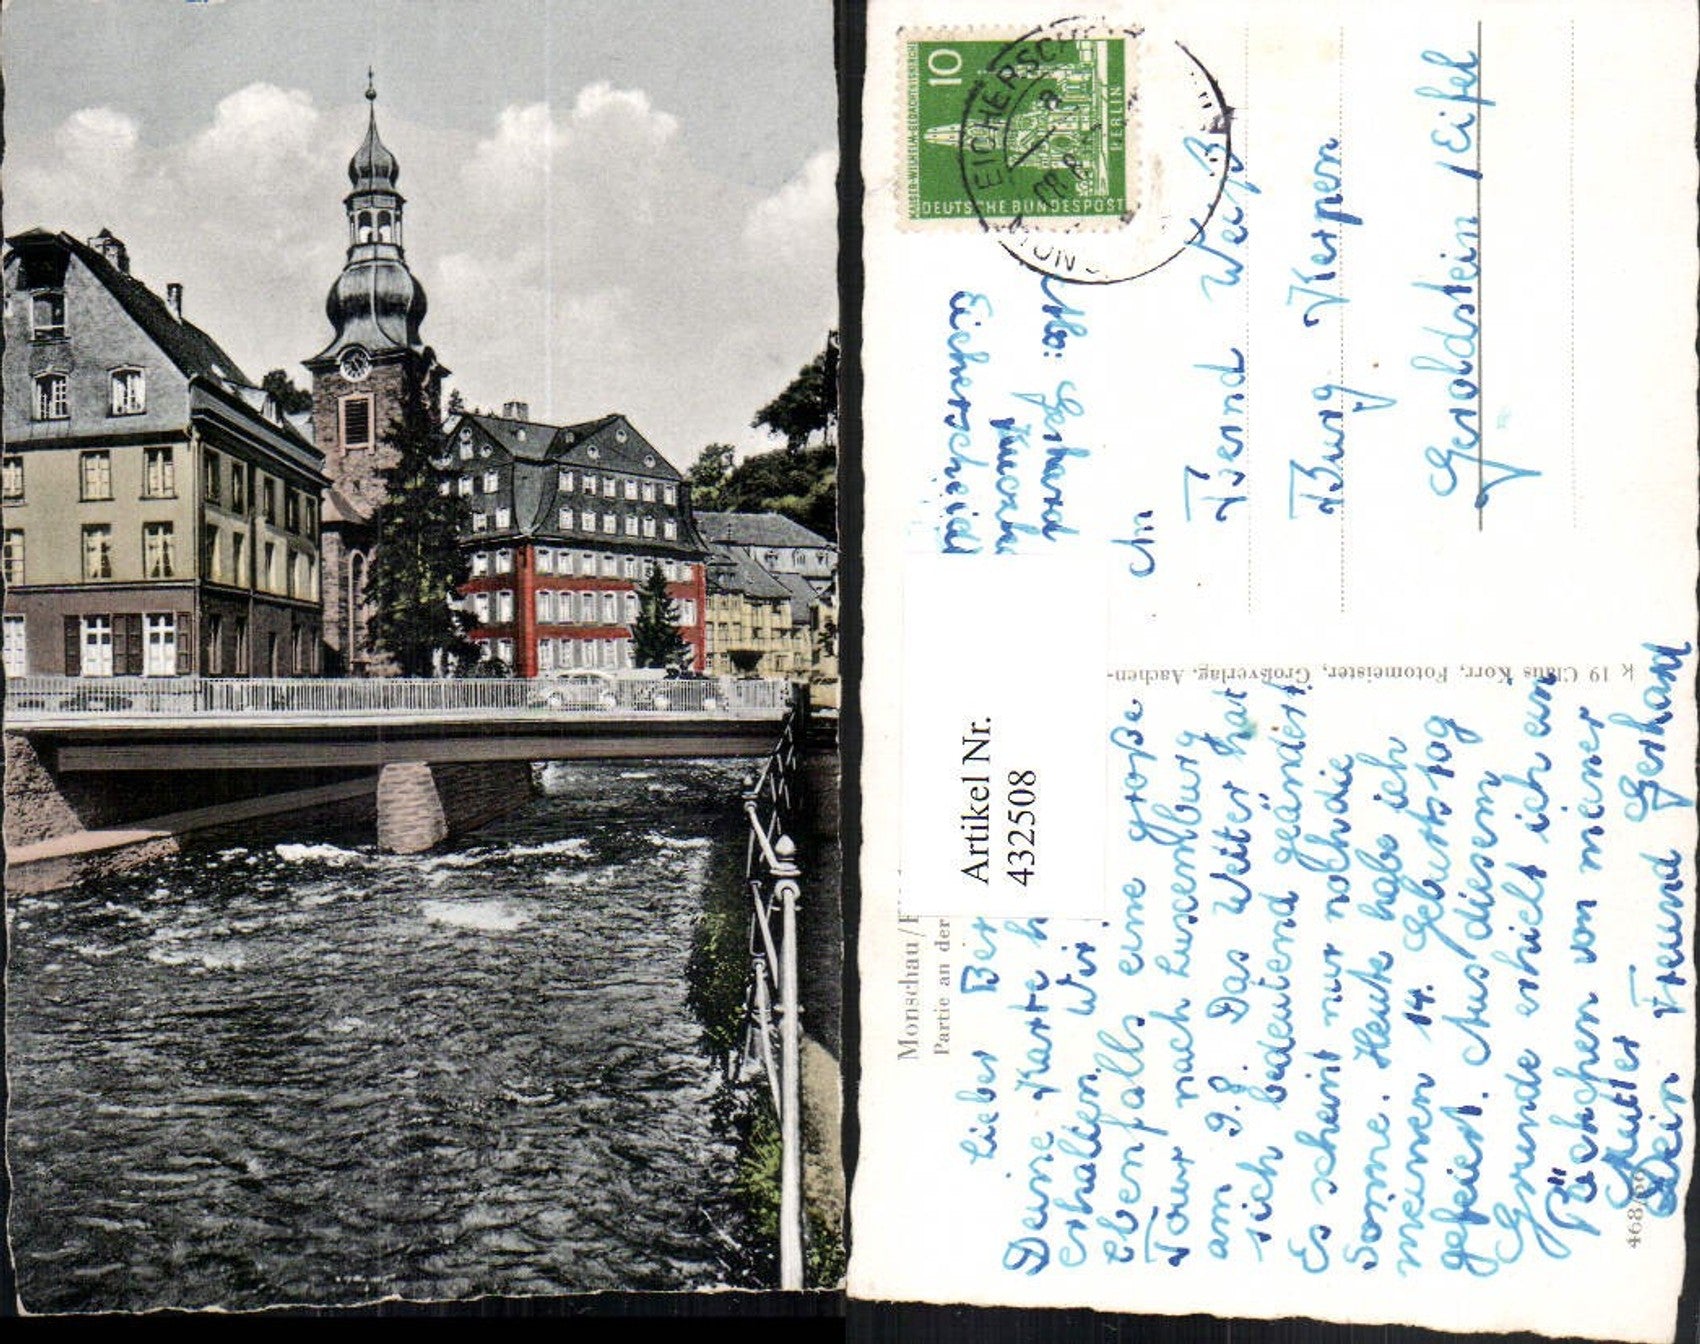 10
KAISER-WILHELM-GEDÄCHTNISKIRCHE
BERLIN
DEUTSCHE BUNDESPOST
EICHERSCHE
Abs: Gerhard
Eicherscheid
An
Bernd Weiß
Burg Kerpen
Gerolstein / Eifel
K 19 Claus Korr, Fotomeister, Großverlag, Aachen-
Artikel Nr.
432508
Monschau/
Partie an der
Lieber Ber
Deine Karte h
erhalten. Wir
ebenfalls eine große
Tour nach Luxemburg
am 9.8. Das Wetter hat
sich bedeutend geändert
Es scheint nur noch die
Sonne. Heute habe ich
meinen 14. Geburtstag
gefeiert. Aus diesem
Grunde erhielt ich ein
von meiner
Mutter
Dein Freund Gerhard
468